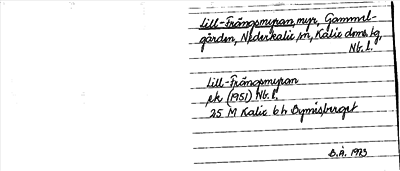 Lill-Trångmyran, myr, Gammel-
gården, Nederkalix sn, Kalix doms.tg,
Nb. l.
Lill-Trångmyran
ek (1951) Nb. l.
25 M Kalix 6 h Bymisberget
B.Å. 1973